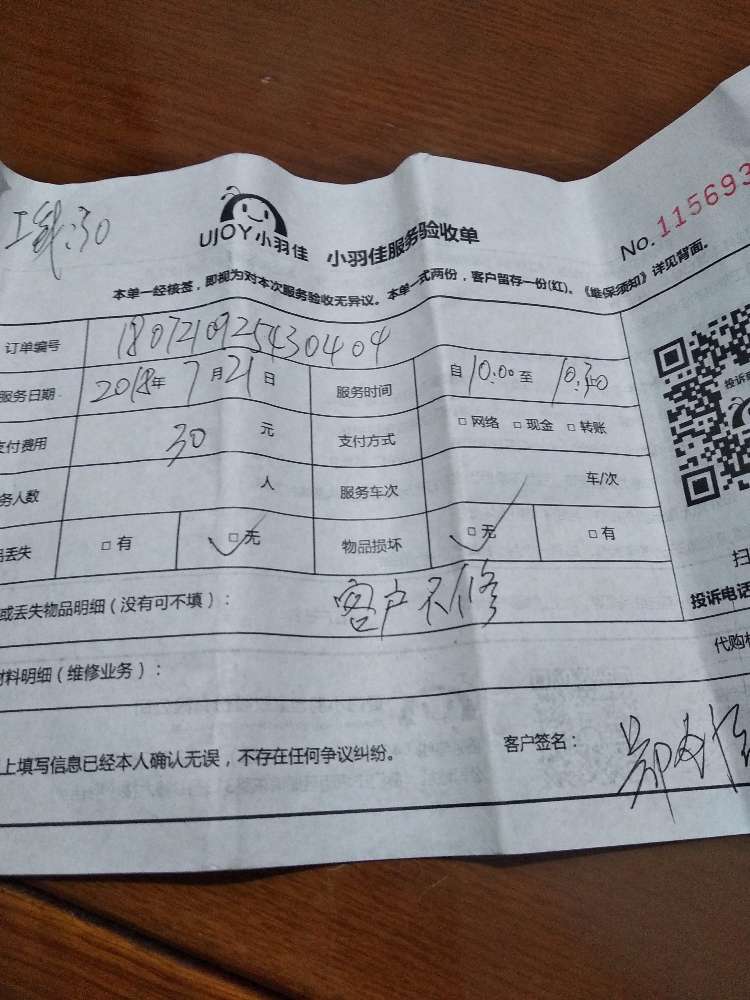 :30
UJOY小羽佳
小羽佳服务验收单
No.115693
本单一经核签，即视为对本次服务验收无异议。本单一式两份，客户留存一份(红)。《维保须知》详见背面。
订单编号 1807210925430404
服务日期 2018年7月21日 服务时间 自10:00至10:30
支付费用 30元 支付方式 □网络 □现金 □转账
务人数 人 服务车次 车/次
丢失 □有 □无 物品损坏 □无 □有
或丢失物品明细（没有可不填）： 客户不修
材料明细（维修业务）：
上填写信息已经本人确认无误，不存在任何争议纠纷。
客户签名：
投诉
扫
投诉电话
代购